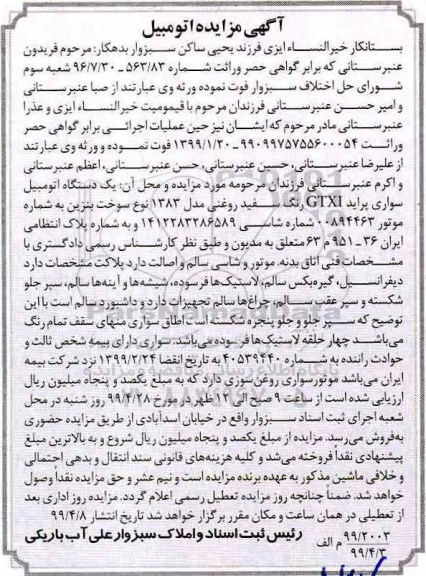 آگهی مزایده اتومبیل
بستانکار خیرالنساء ایزی فرزند یحیی ساکن سبزوار بدهکار: مرحوم فریدون
عنبرستانی که برابر گواهی حصر وراثت شماره ۵۶۳/۸۳ ـ ۹۶/۷/۳۰ شعبه سوم
شورای حل اختلاف سبزوار فوت نموده ورثه وی عبارتند از صبا عنبرستانی
و امیر حسن عنبرستانی فرزندان مرحوم با قیمومیت خیرالنساء ایزی و عذرا
عنبرستانی مادر مرحوم که ایشان نیز حین عملیات اجرائی برابر گواهی حصر
وراثت ۹۹۰۹۹۷۵۷۵۵۶۰۰۰۵۴ ـ ۱۳۹۹/۱/۲۰ فوت نموده و ورثه وی عبارتند
از علیرضا عنبرستانی، حسین عنبرستانی، حسن عنبرستانی، اعظم عنبرستانی
و اکرم عنبرستانی فرزندان مرحومه مورد مزایده و محل آن: یک دستگاه اتومبیل
سواری پراید GTXI رنگ سفید روغنی مدل ۱۳۸۳ نوع سوخت بنزین به شماره
موتور ۰۰۸۹۴۴۶۳ شماره شاسی ۱۴۱۲۲۸۳۲۸۶۵۸۹ و به شماره پلاک انتظامی
ایران ۳۶ ـ ۹۵۱ م ۶۳ متعلق به مدیون و طبق نظر کارشناس رسمی دادگستری با
مشخصات فنی اتاق بدنه، موتور و شاسی سالم و اصالت دارد پلاکت مشخصات دارد
دیفرانسیل، گیربکس سالم، لاستیک‌ها فرسوده، شیشه‌ها و آینه‌ها سالم، سپر جلو
شکسته و سپر عقب سالم، چراغ‌ها سالم تجهیزات دارد و داشبورد سالم است با این
توضیح که سپر جلو و جلو پنجره شکسته است اطاق سواری منهای سقف تمام رنگ
می‌باشد چهار حلقه لاستیک‌ها فرسوده می‌باشد. سواری دارای بیمه شخص ثالث و
حوادث راننده به شماره ۴۰۵۳۹۴۴۰ به تاریخ انقضا ۱۳۹۹/۲/۲۴ نزد شرکت بیمه
ایران می‌باشد موتور سواری روغن‌سوزی دارد که به مبلغ یکصد و پنجاه میلیون ریال
ارزیابی شده است از ساعت ۹ صبح الی ۱۲ ظهر در مورخ ۹۹/۴/۲۸ روز شنبه در محل
شعبه اجرای ثبت اسناد سبزوار واقع در خیابان اسدآبادی از طریق مزایده حضوری
به‌فروش می‌رسد. مزایده از مبلغ یکصد و پنجاه میلیون ریال شروع و به بالاترین مبلغ
پیشنهادی نقداً فروخته می‌شد و کلیه هزینه‌های قانونی سند انتقال و بدهی احتمالی
و خلافی ماشین مذکور به عهده برنده مزایده است و نیم عشر و حق مزایده نقداً وصول
خواهد شد. ضمناً چنانچه روز مزایده تعطیل رسمی اعلام گردد، مزایده روز اداری بعد
از تعطیلی در همان ساعت و مکان مقرر برگزار خواهد شد تاریخ انتشار ۹۹/۴/۸
۹۹/۲۰۰۳ م الف رئیس ثبت اسناد و املاک سبزوار علی آب باریکی
۹۹/۴/۳